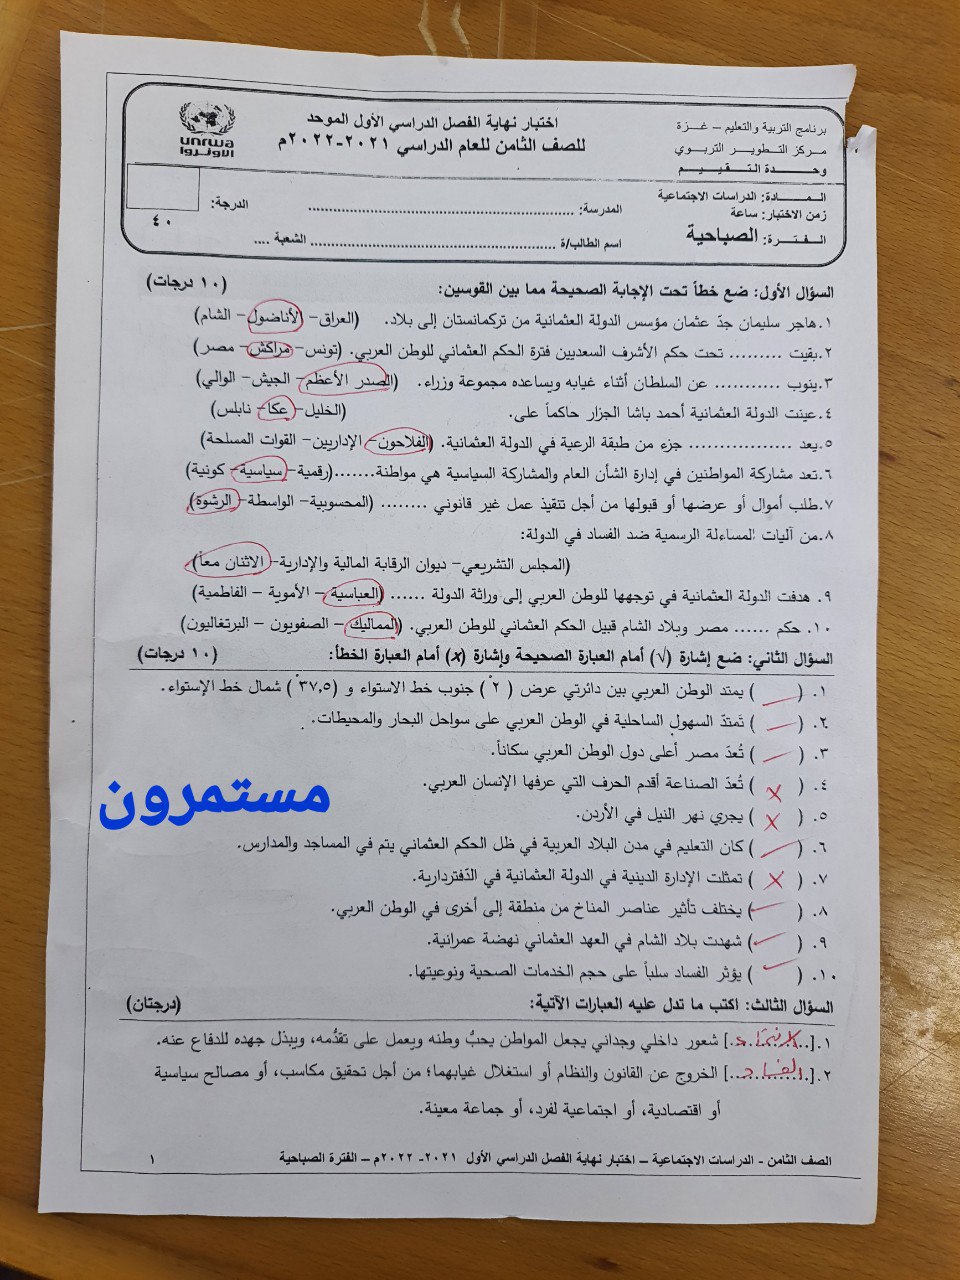 برنامج التربية والتعليم – غزة
مركز التطوير التربوي
وحدة التقييم
اختبار نهاية الفصل الدراسي الأول الموحد
للصف الثامن للعام الدراسي ٢٠٢١-٢٠٢٢م
unrwa
الأونروا
المادة: الدراسات الاجتماعية
زمن الاختبار: ساعة
الفترة: الصباحية
المدرسة: ..........................
اسم الطالب/ة .......................... الشعبة ....
الدرجة:
٤٠
السؤال الأول: ضع خطاً تحت الإجابة الصحيحة مما بين القوسين: (١٠ درجات)
١.هاجر سليمان جدّ عثمان مؤسس الدولة العثمانية من تركمانستان إلى بلاد. (العراق- الأناضول- الشام)
٢.بقيت ......... تحت حكم الأشرف السعديين فترة الحكم العثماني للوطن العربي. (تونس- مراكش- مصر)
٣.ينوب ........... عن السلطان أثناء غيابه ويساعده مجموعة وزراء. (الصدر الأعظم- الجيش- الوالي)
٤.عينت الدولة العثمانية أحمد باشا الجزار حاكماً على. (الخليل- عكا- نابلس)
٥.يعد ................. جزء من طبقة الرعية في الدولة العثمانية. (الفلاحون- الإداريين- القوات المسلحة)
٦.تعد مشاركة المواطنين في إدارة الشأن العام والمشاركة السياسية هي مواطنة.......(رقمية- سياسية- كونية)
٧.طلب أموال أو عرضها أو قبولها من أجل تنفيذ عمل غير قانوني ........ (المحسوبية- الواسطة- الرشوة)
٨.من آليات المساءلة الرسمية ضد الفساد في الدولة:
(المجلس التشريعي- ديوان الرقابة المالية والإدارية- الاثنان معاً)
٩. هدفت الدولة العثمانية في توجهها للوطن العربي إلى وراثة الدولة ...... (العباسية – الأموية – الفاطمية)
١٠. حكم ...... مصر وبلاد الشام قبيل الحكم العثماني للوطن العربي. (المماليك – الصفويون – البرتغاليون)
السؤال الثاني: ضع إشارة (√) أمام العبارة الصحيحة وإشارة (x) أمام العبارة الخطأ: (١٠ درجات)
١. ( ـ ) يمتد الوطن العربي بين دائرتي عرض ( ٢°) جنوب خط الاستواء و (٣٧,٥° ) شمال خط الإستواء.
٢. ( ـ ) تمتدّ السهول الساحلية في الوطن العربي على سواحل البحار والمحيطات.
٣. ( ـ ) تُعدّ مصر أعلى دول الوطن العربي سكاناً.
٤. ( x ) تُعدّ الصناعة أقدم الحرف التي عرفها الإنسان العربي.
٥. ( x ) يجري نهر النيل في الأردن.
٦. ( ـ ) كان التعليم في مدن البلاد العربية في ظل الحكم العثماني يتم في المساجد والمدارس.
٧. ( x ) تمثلت الإدارة الدينية في الدولة العثمانية في الدّفتردارية.
٨. ( ✓ ) يختلف تأثير عناصر المناخ من منطقة إلى أخرى في الوطن العربي.
٩. ( ✓ ) شهدت بلاد الشام في العهد العثماني نهضة عمرانية.
١٠. ( ✓ ) يؤثر الفساد سلباً على حجم الخدمات الصحية ونوعيتها.
مستمرون
السؤال الثالث: اكتب ما تدل عليه العبارات الآتية: (درجتان)
١.[..الانتماء..] شعور داخلي وجداني يجعل المواطن يحبُّ وطنه ويعمل على تقدُّمه، ويبذل جهده للدفاع عنه.
٢.[..الفساد..] الخروج عن القانون والنظام أو استغلال غيابهما؛ من أجل تحقيق مكاسب، أو مصالح سياسية
أو اقتصادية، أو اجتماعية لفرد، أو جماعة معينة.
الصف الثامن - الدراسات الاجتماعية – اختبار نهاية الفصل الدراسي الأول ٢٠٢١- ٢٠٢٢م – الفترة الصباحية ١